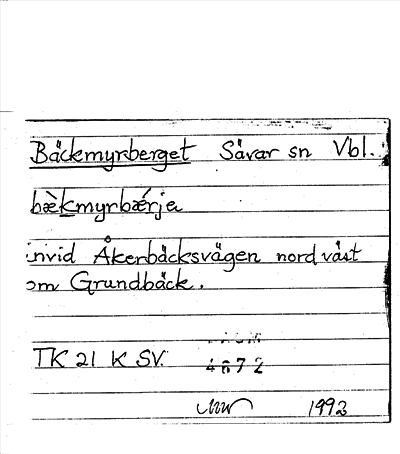 Bäckmyrberget Sävar sn Vbl.
bæ̀kmyrbǽrje
invid Åkerbäcksvägen nordväst
om Grundbäck.
TK 21 K SV.
4672
1992